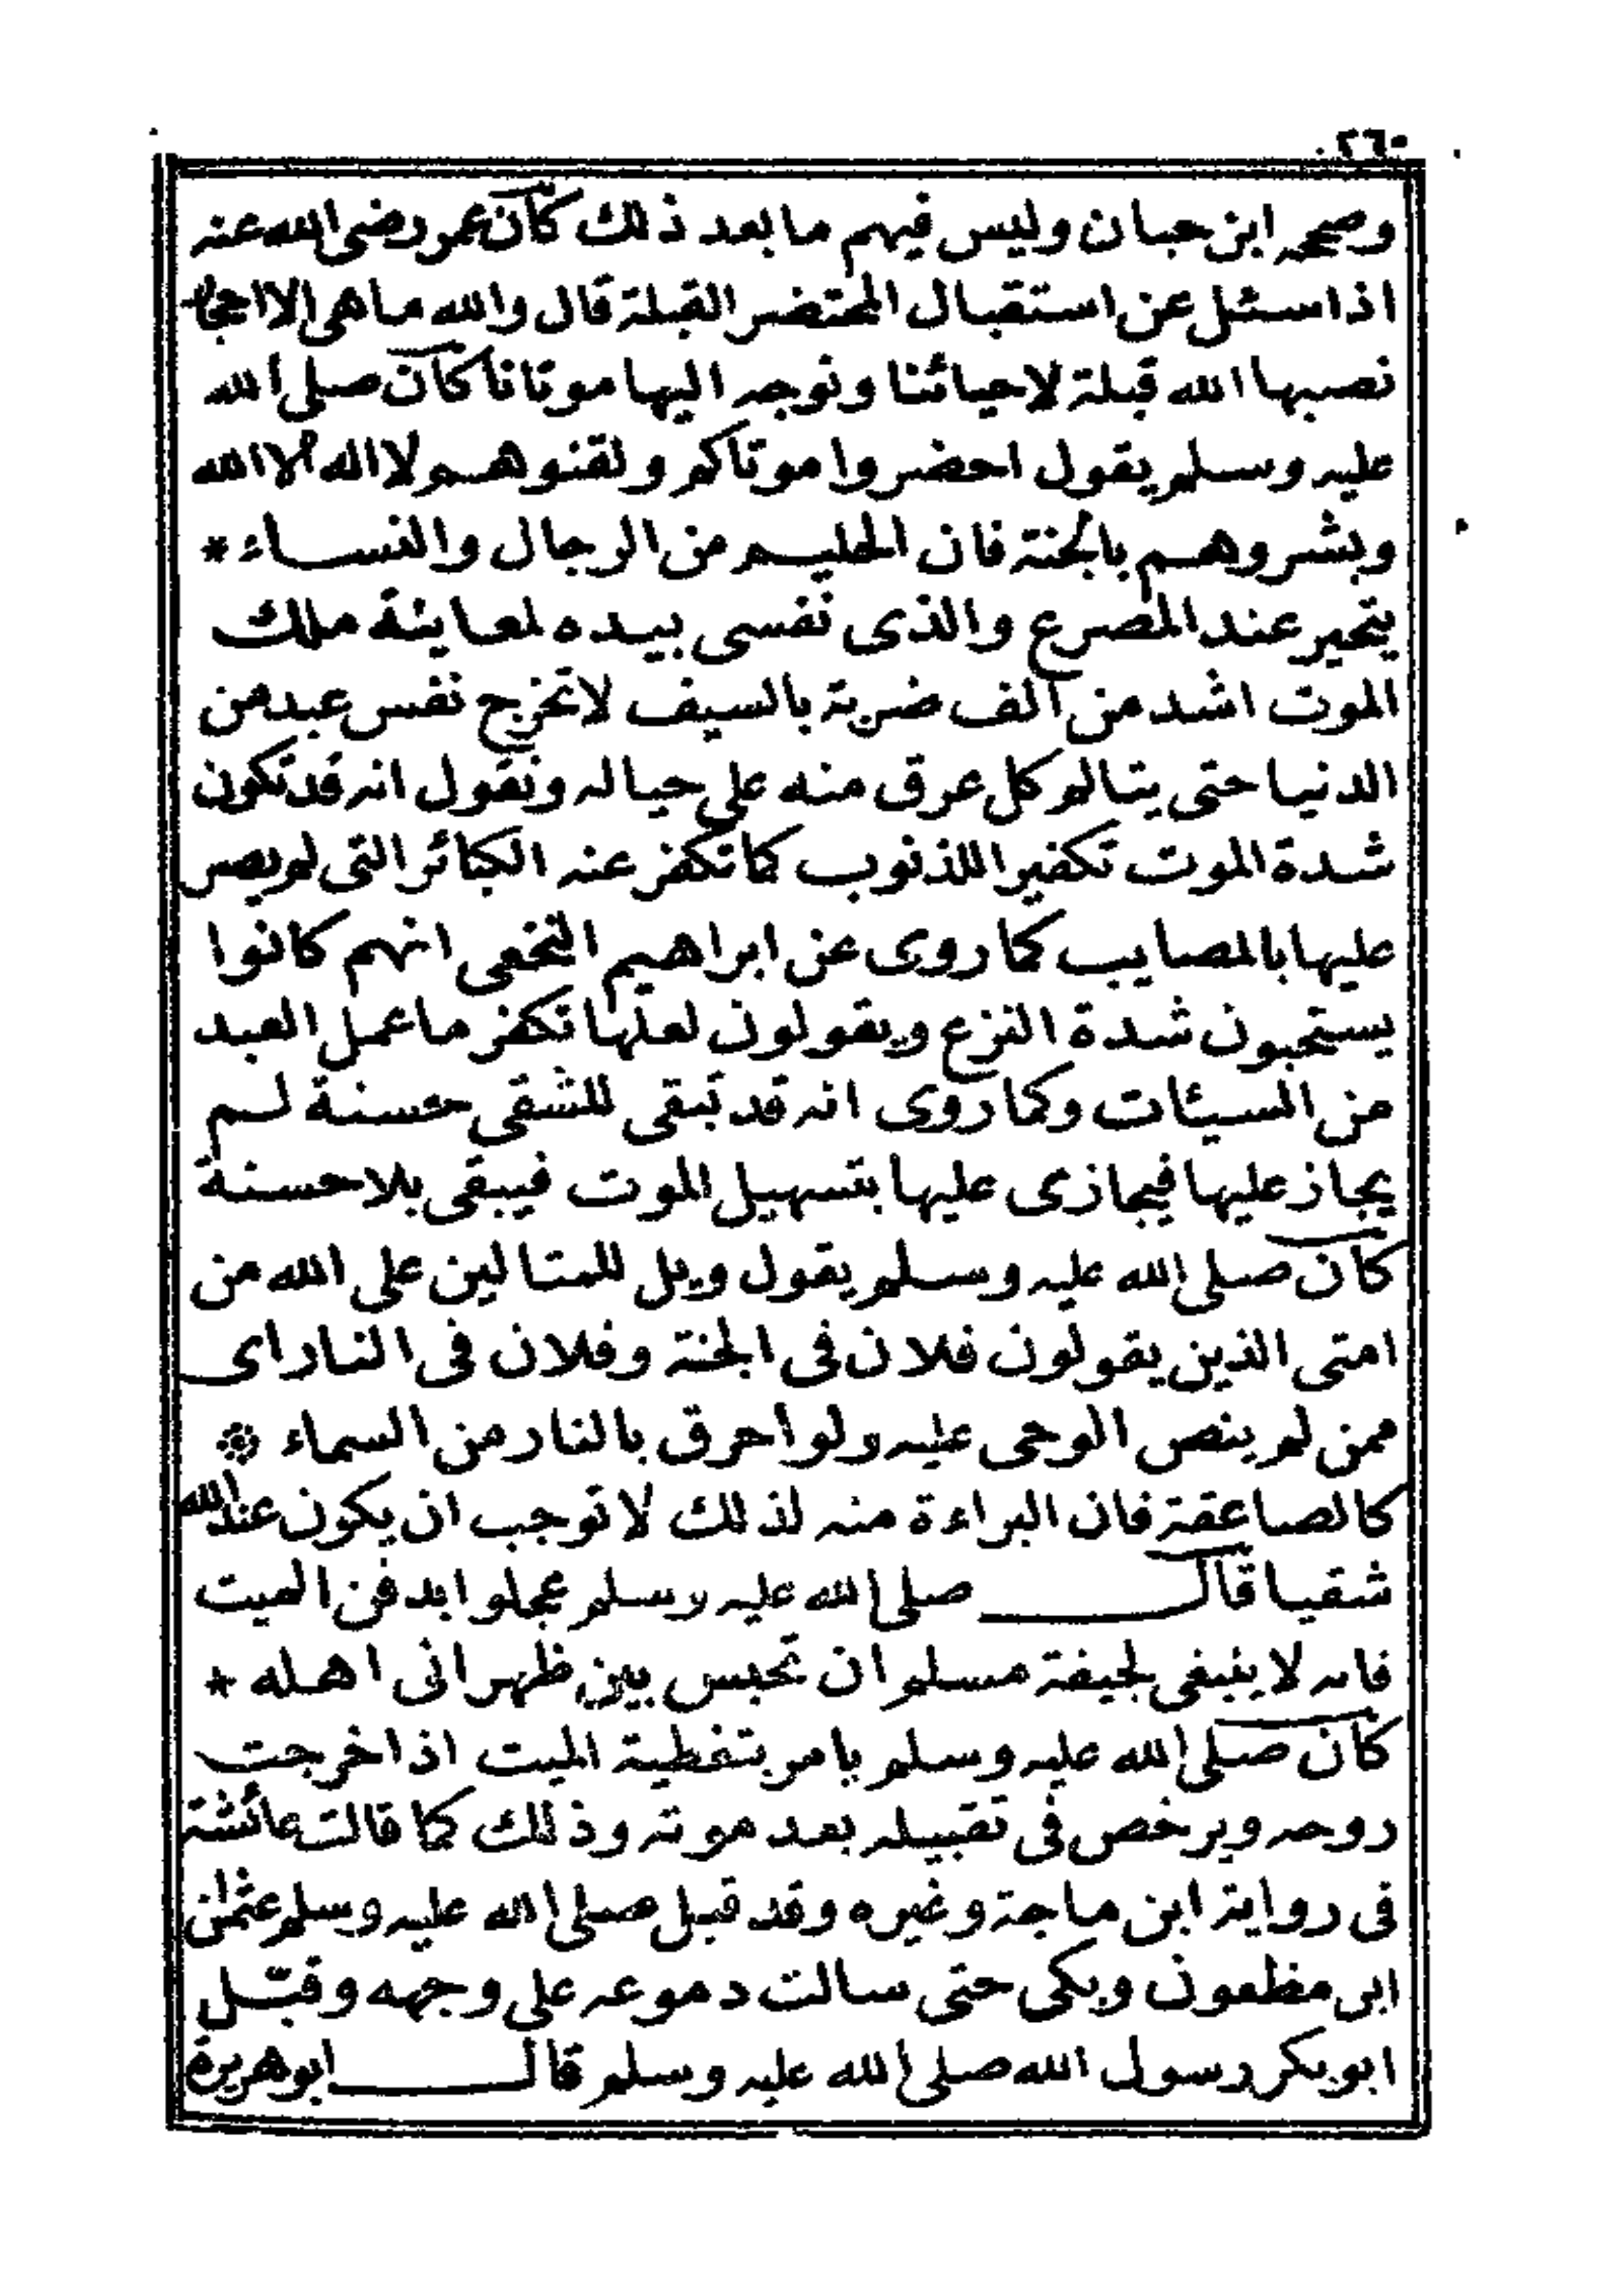 ٢٦٠
وصححه ابن حبان وليس فيهم ما بعد ذلك كان عمر رضى الله عنه
اذا سئل عن استقبال المحتضر القبلة قال والله ما هى الا احجار
نصبها الله قبلة لاحيائنا ونوجه اليها موتانا كان صلى الله
عليه وسلم يقول احضروا موتاكم ولقنوهم لا اله الا الله
وبشروهم بالجنة فان الحليم من الرجال والنساء *
يتحير عند المصرع والذى نفسى بيده لمعاينة ملك
الموت اشد من الف ضربة بالسيف لا تخرج نفس عبد من
الدنيا حتى يتالم كل عرق منه على حياله ونقول انه قد تكون
شدة الموت تكفيرا للذنوب كما تكفر عنه الكبائر التى لم يصر
عليها بالمصايب كما روى عن ابراهيم النخعى انهم كانوا
يستحبون شدة النزع ويقولون لعلها تكفر ما عمل العبد
من السيئات وكما روى انه قد تبقى للشقى حسنة لم
يجاز عليها فيجازى عليها بتسهيل الموت فيبقى بلا حسنة
كان صلى الله عليه وسلم يقول ويل للمتالين على الله من
امتى الذين يقولون فلان فى الجنة وفلان فى النار اى
ممن لم ينص الوحى عليه ولو احرق بالنار من السماء *
كالصاعقة فان البراءة منه لذلك لا توجب ان يكون عند الله
شقيا قال صلى الله عليه وسلم عجلوا بدفن الميت
فانه لا ينبغى لجيفة مسلم ان تحبس بين ظهرانى اهله *
كان صلى الله عليه وسلم يامر بتغطية الميت اذا خرجت
روحه ويرخص فى تقبيله بعد موته وذلك كما قالت عائشة
فى رواية ابن ماجة وغيره وقد قبل صلى الله عليه وسلم عثمان
ابن مظعون وبكى حتى سالت دموعه على وجهه وقبّل
ابو بكر رسول الله صلى الله عليه وسلم قال ابو هريرة